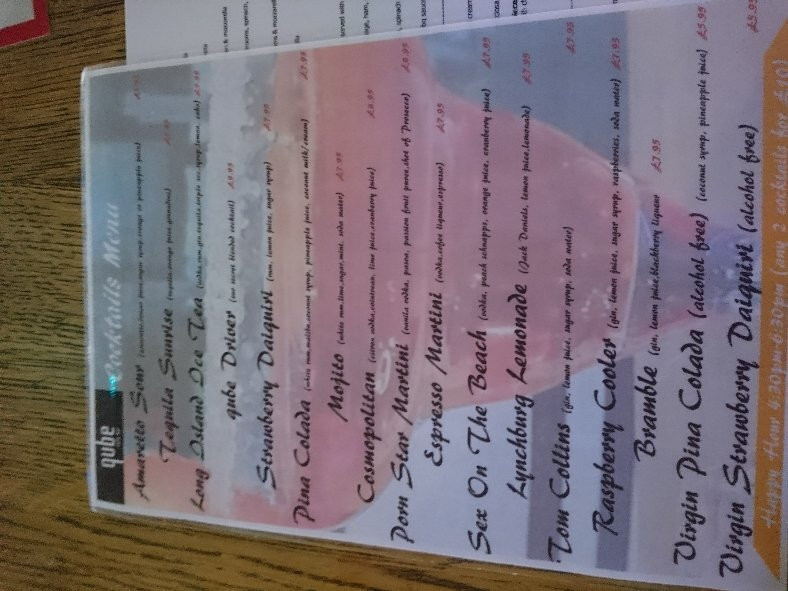 qube
Cocktails Menu
Amaretto Sour (amaretto, lemon juice, sugar syrup, orange or pineapple juice)
Tequila Sunrise (tequila, orange juice, grenadine)
Long Island Ice Tea (vodka, rum, gin, tequila, triple sec, syrup, lemon, soda)
qube Driver (our secret blended cocktail) £9.95
Strawberry Daiquiri (rum, lemon juice, sugar syrup) £7.95
Pina Colada (white rum, malibu, coconut syrup, pineapple juice, coconut milk/cream) £7.95
Mojito (white rum, lime, sugar, mint, soda water) £7.95
Cosmopolitan (citron vodka, cointreau, lime juice, cranberry juice) £8.95
Porn Star Martini (vanila vodka, passoa, passion fruit puree, shot of Prosecco) £8.95
Espresso Martini (vodka, cofee liqueur, espresso) £7.95
Sex On The Beach (vodka, peach schnapps, orange juice, cranberry juice) £7.95
Lynchburg Lemonade (Jack Daniels, lemon juice, lemonade) £7.95
Tom Collins (gin, lemon juice, sugar syrup, soda water) £7.95
Raspberry Cooler (gin, lemon juice, sugar syrup, raspberries, soda water) £7.95
Bramble (gin, lemon juice, blackberry liqueur £7.95
Virgin Pina Colada (alcohol free) (coconut syrup, pineapple juice) £5.95
Virgin Strawberry Daiquiri (alcohol free) £5.95
Happy Hour 4:30pm-6:30pm (any 2 cocktails for £10)